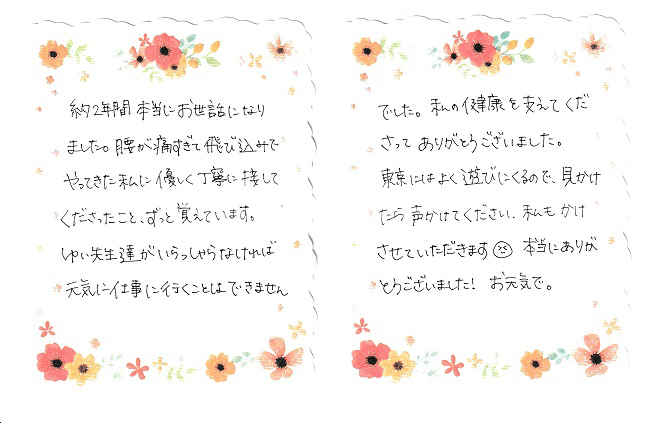 約2年間 本当にお世話になり
ました。腰が痛すぎて飛び込みで
やってきた私に優しく丁寧に接して
くださったこと、ずっと覚えています。
ゆい先生達がいらっしゃらなければ
元気に仕事に行くことはできません
でした。私の健康を支えてくだ
さって ありがとうございました。
東京にはよく遊びにくるので、見かけ
たら声かけてください、私もかけ
させていただきます 本当にありが
とうございました! お元気で。